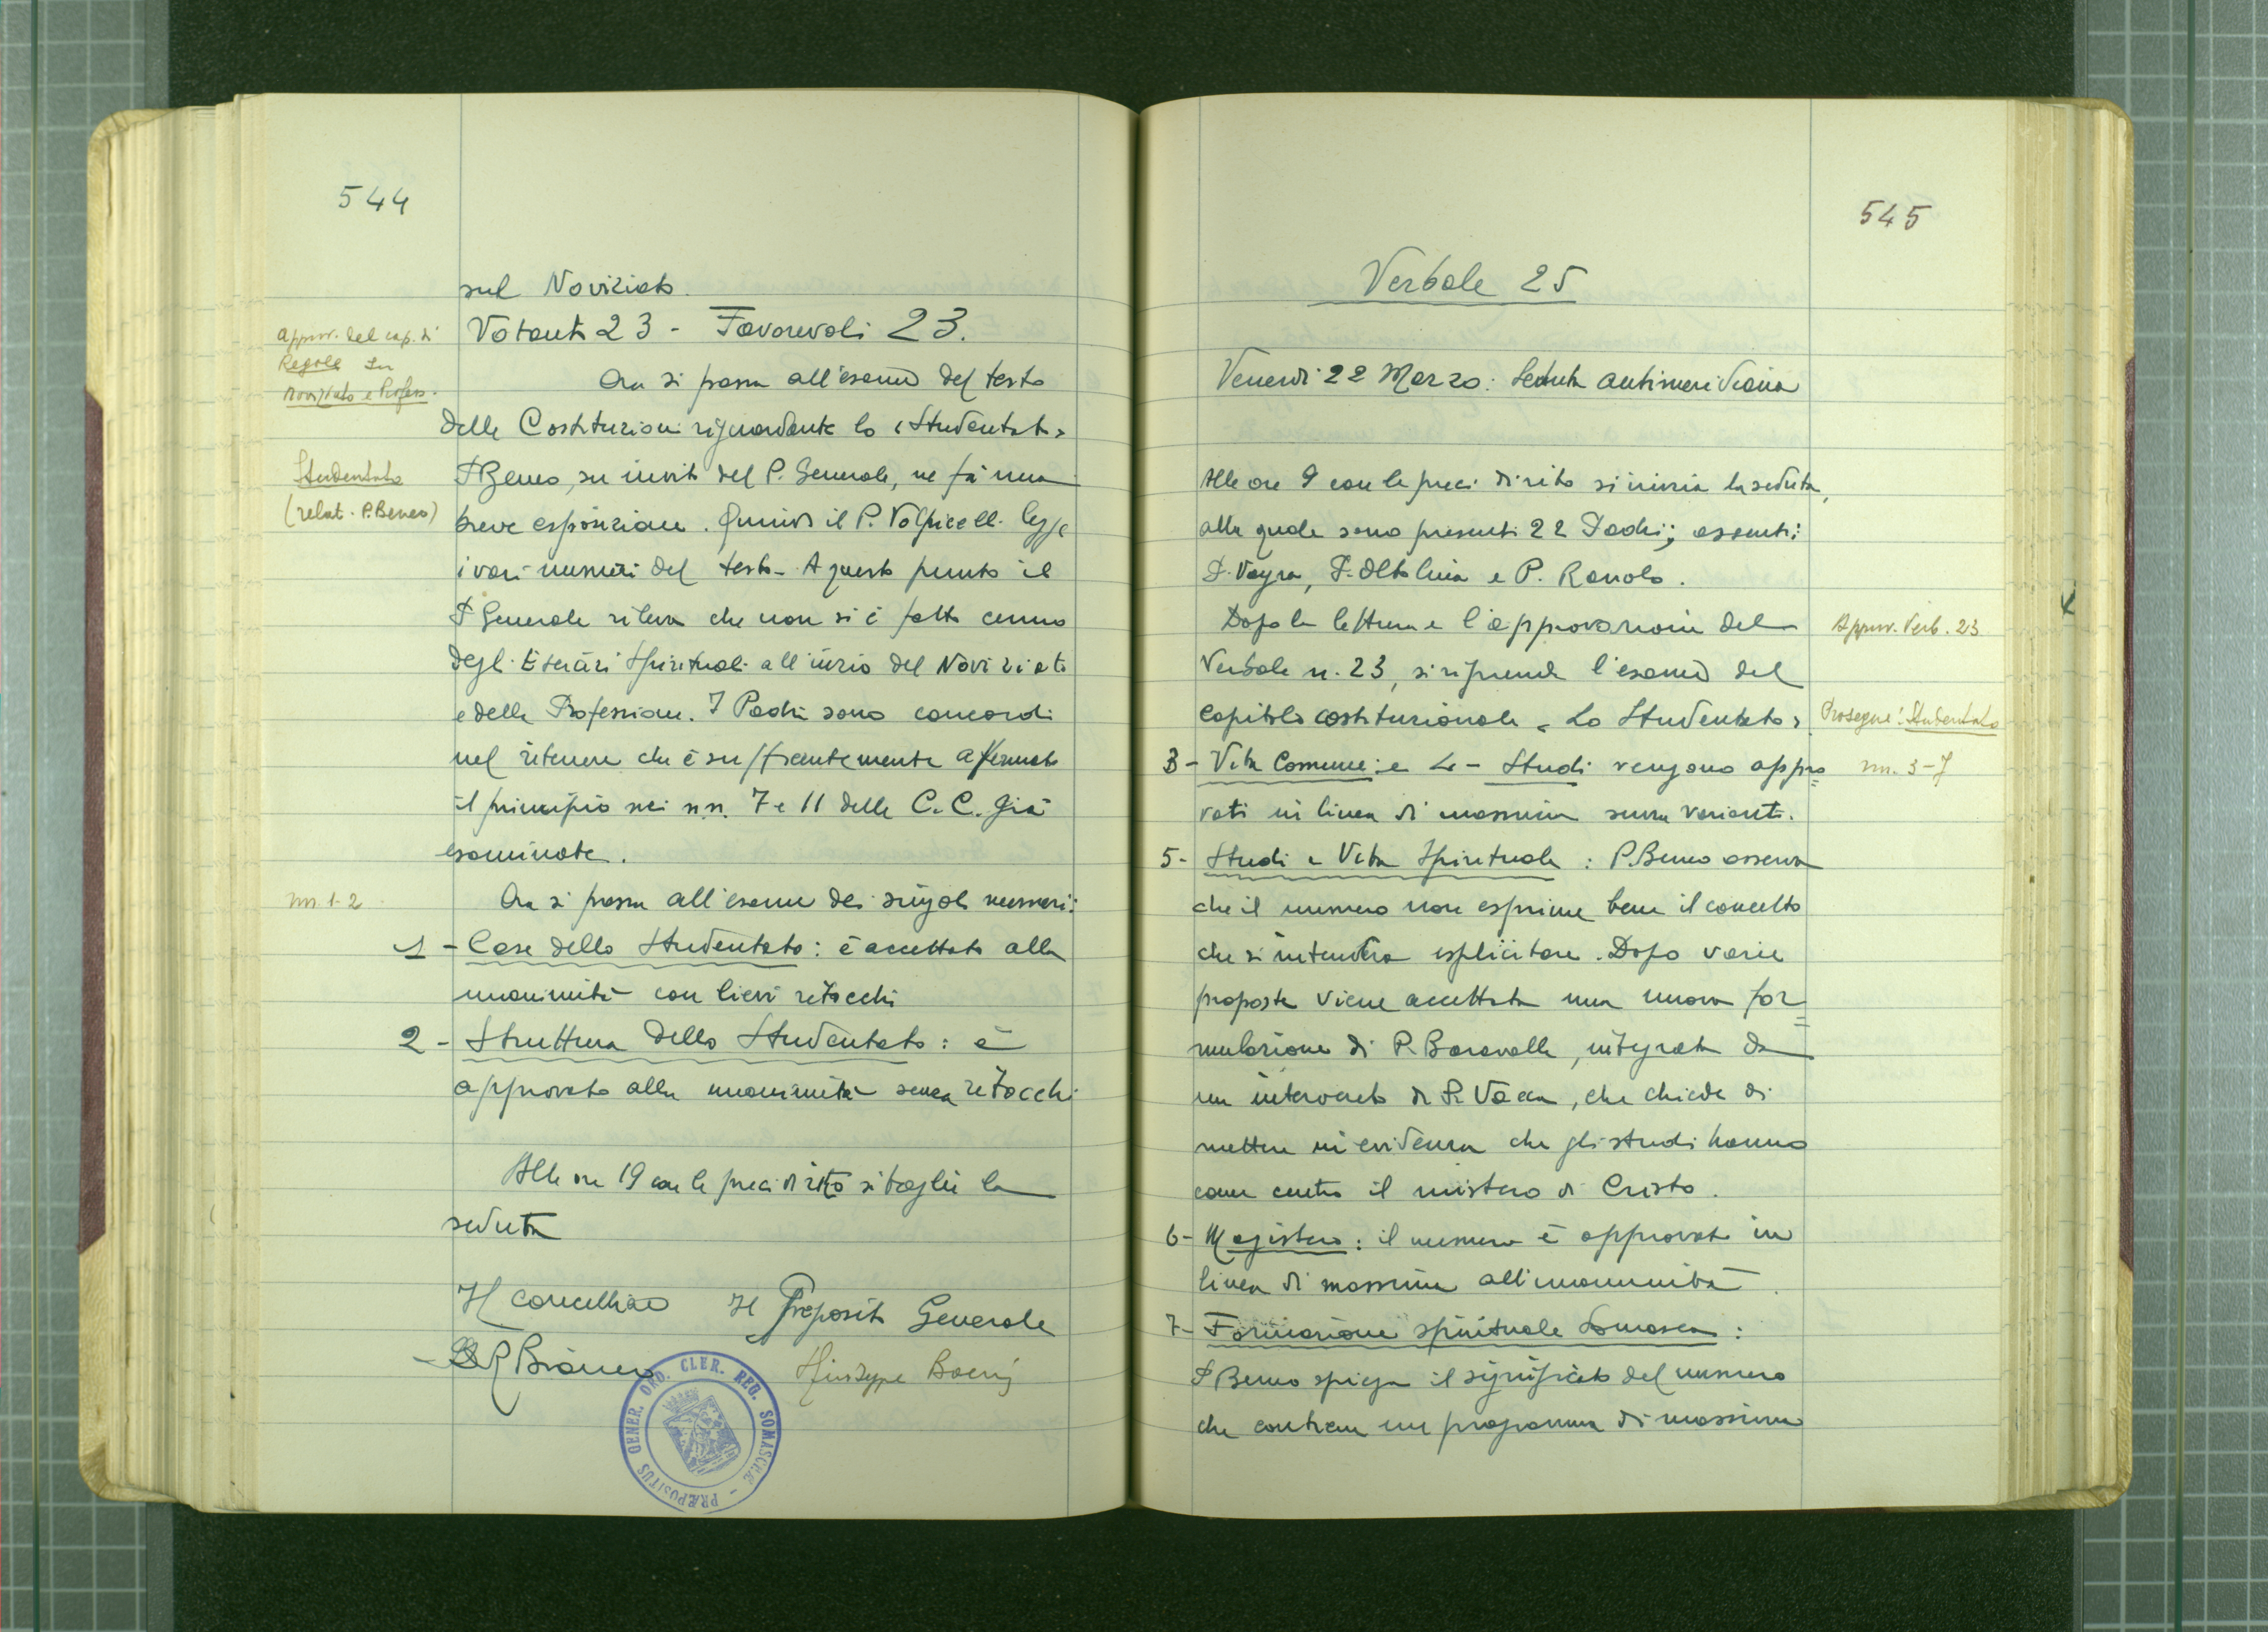 544
sul Noviziato.
Votanti 23 - Favorevoli 23.
Approv. del cap. di
Regole su
Noviziato e Profess.
Ora si passa all'esame del testo
delle Costituzioni riguardante lo «Studentato»
Studentato
(relat. P. Beneo)
P. Beneo, su invito del P. Generale, ne fà una
breve esposizione. Quindi il P. Volpicelli legge
i vari numeri del testo. A questo punto il
P. Generale rileva che non si è fatto cenno
degli Esercizi Spirituali all'inizio del Noviziato
e della Professione. I Padri sono concordi
nel ritenere che è sufficientemente affermato
il principio nei nn. 7 e 11 delle C.C. già
esaminate.
nn. 1-2
Ora si passa all'esame dei singoli numeri:
1 - Case dello Studentato: è accettato alla
unanimità con lievi ritocchi
2 - Struttura dello Studentato: è
approvato alla unanimità senza ritocchi
Alle ore 19 con le preci di rito si toglie la
seduta
Il Cancelliere
Il Preposito Generale
Giuseppe Boeris
PRÆPOSITUS GENER. ORD. CLER. REG. SOMASCHÆ
545
Verbale 25
Venerdì 22 Marzo: Seduta antimeridiana
Alle ore 9 con le preci di rito si inizia la seduta,
alla quale sono presenti 22 Padri; assenti:
P. Vayra, P. Altolina e P. Ranolo.
Dopo la lettura e l'approvazione del
Approv. Verb. 23
Verbale n. 23, si riprende l'esame del
capitolo costituzionale «Lo Studentato».
Prosegue: Studentato
3 - Vita Comune: e 4 - Studi vengono appro=
nn. 3-7
vati in linea di massima senza varianti.
5 - Studi e Vita Spirituale: P. Beneo osserva
che il numero non esprime bene il concetto
che si intendeva esplicitare. Dopo varie
proposte viene accettata una nuova for=
mulazione di P. Baravalle, integrata da
un intervento di P. Vacca, che chiede di
mettere in evidenza che gli studi hanno
come centro il mistero di Cristo.
6 - Magistero: il numero è approvato in
linea di massima all'unanimità.
7 - Formazione spirituale Somasca:
P. Beneo spiega il significato del numero
che contiene un programma di massima